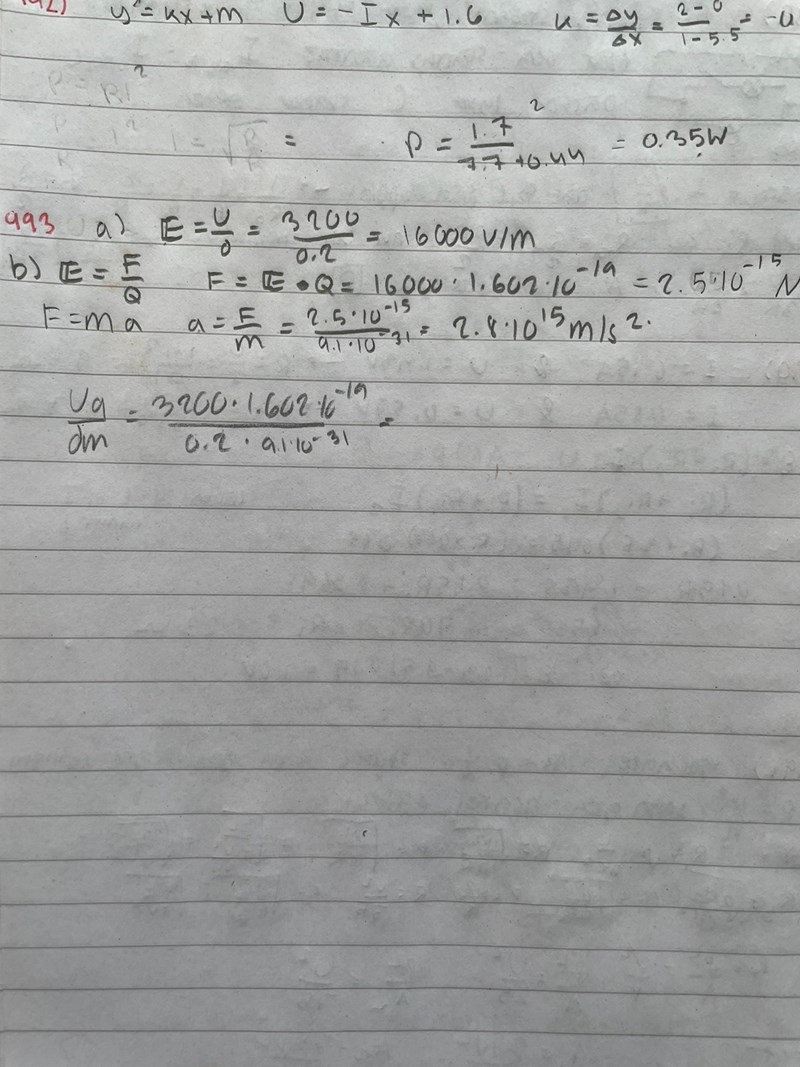 y = kx+m U = -Ix + 1.6 k = Δy/Δx = 2-0/1-5.5 =
P = RI²
I = √ = P = 1.7²/7.7+0.44 = 0.35W
993 a) E = U/0 = 3200/0.2 = 16000 V/m
b) E = F/Q F = E • Q = 16000 · 1.602·10⁻¹⁹ = 2.5·10⁻¹⁵ N
F = ma a = F/m = 2.5·10⁻¹⁵/9.1·10⁻³¹ = 2.8·10¹⁵ m/s².
Uq/dm = 3200·1.602·10⁻¹⁹/0.2 · 9.1·10⁻³¹ =